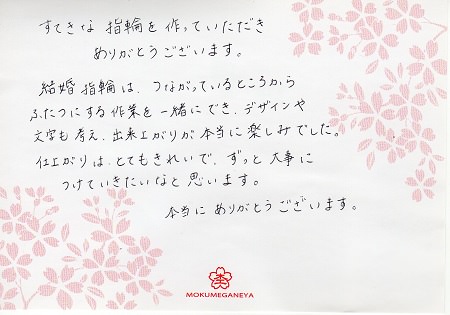 すてきな 指輪を 作っていただき
ありがとうございます。
結婚 指輪は、つながっているところから
ふたつにする 作業を 一緒にでき、デザインや
文字も 考え、出来上がりが 本当に 楽しみでした。
仕上がりは、とてもきれいで、ずっと 大事に
つけていきたいなと 思います。
本当に ありがとうございます。
MOKUMEGANEYA